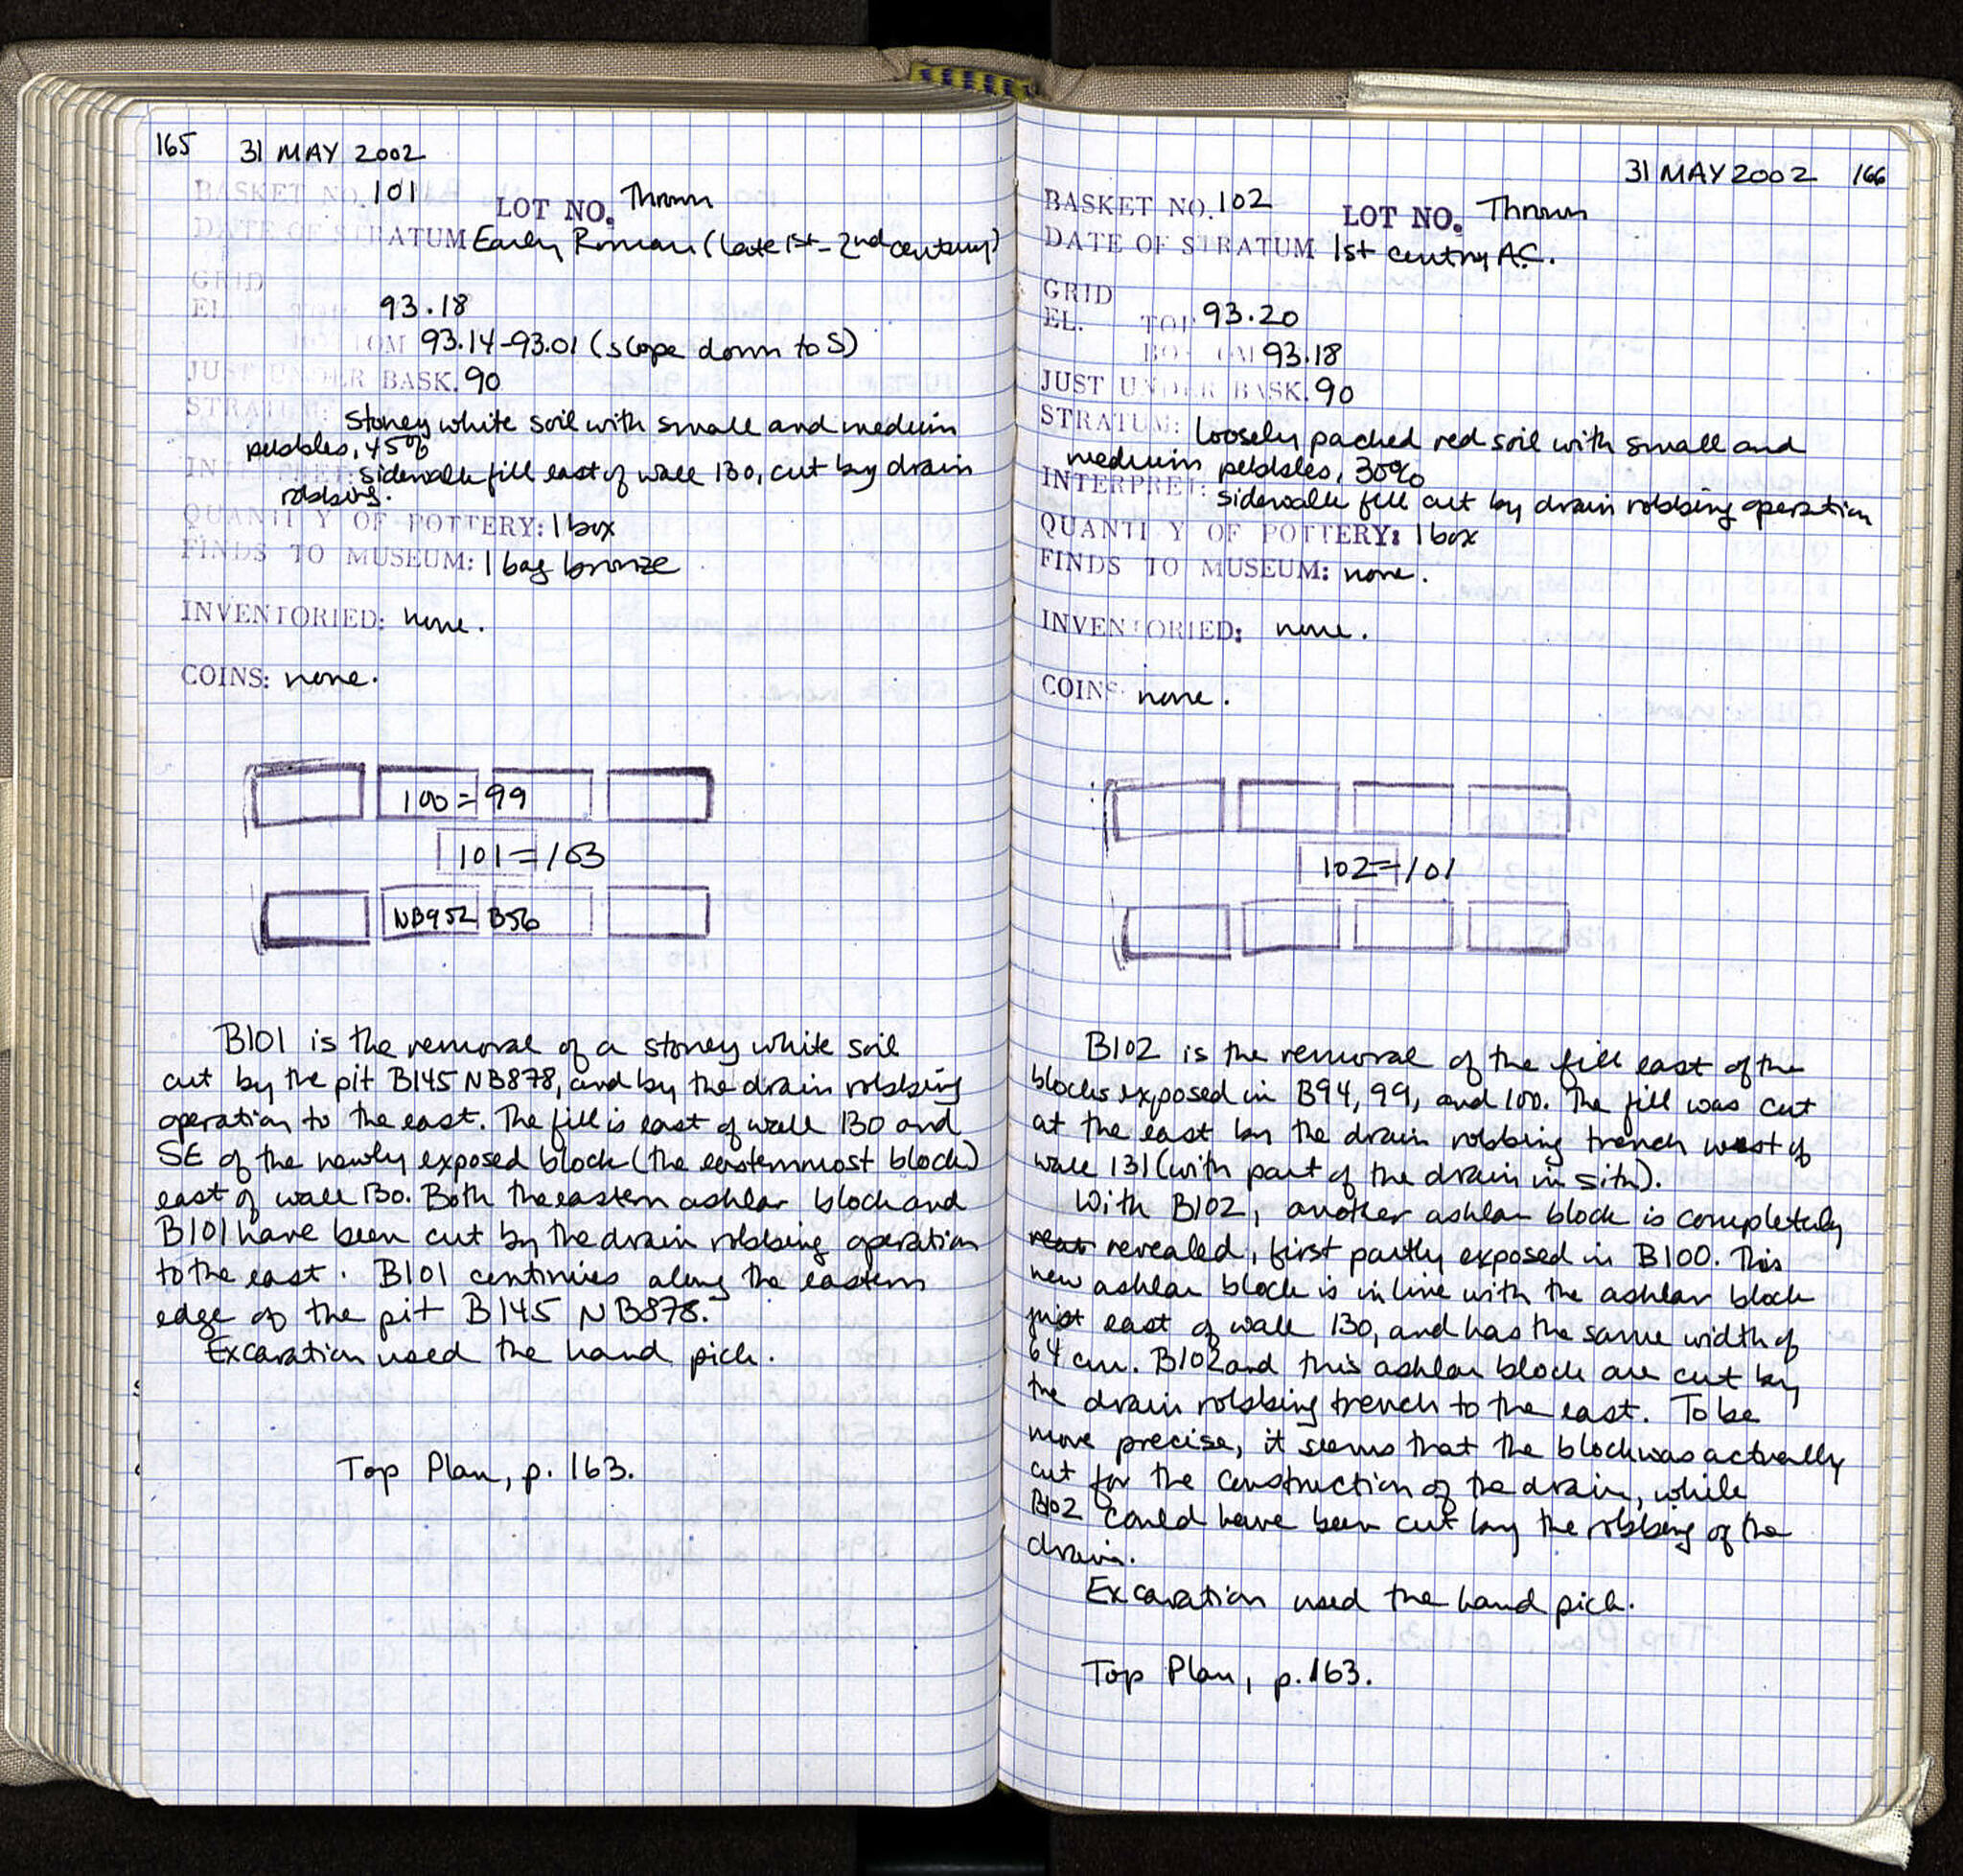 165 31 MAY 2002
BASKET NO. 101 LOT NO. Thrown
DATE OF STRATUM Early Roman (late 1st - 2nd century)
GRID
EL. TOP 93.18
BOTTOM 93.14-93.01 (slope down to S)
JUST UNDER BASK. 90
STRATUM: Stoney white soil with small and medium
pebbles, 45%
INTERPRET: sidewalk fill east of wall 130, cut by drain
robbing.
QUANTITY OF POTTERY: 1 box
FINDS TO MUSEUM: 1 bag bronze
INVENTORIED: none.
COINS: none.
100 = 99
101 = 103
NB952 B56
B101 is the removal of a stoney white soil
cut by the pit B145 NB878, and by the drain robbing
operation to the east. The fill is east of wall 130 and
SE of the newly exposed block (the easternmost block)
east of wall 130. Both the eastern ashlar block and
B101 have been cut by the drain robbing operation
to the east. B101 continues along the eastern
edge of the pit B145 NB878.
Excavation used the hand pick.
Top Plan, p. 163.
31 MAY 2002 166
BASKET NO. 102 LOT NO. Thrown
DATE OF STRATUM 1st century A.C.
GRID
EL. TOP 93.20
BOTTOM 93.18
JUST UNDER BASK. 90
STRATUM: loosely packed red soil with small and
medium pebbles, 30%
INTERPRET: sidewalk fill cut by drain robbing operation
QUANTITY OF POTTERY: 1 box
FINDS TO MUSEUM: none.
INVENTORIED: none.
COINS none.
102 = 101
B102 is the removal of the fill east of the
blocks exposed in B94, 99, and 100. The fill was cut
at the east by the drain robbing trench west of
wall 131 (with part of the drain in situ).
With B102, another ashlar block is completely
revealed, first partly exposed in B100. This
new ashlar block is in line with the ashlar block
just east of wall 130, and has the same width of
64 cm. B102 and this ashlar block are cut by
the drain robbing trench to the east. To be
more precise, it seems that the block was actually
cut for the construction of the drain, while
B102 could have been cut by the robbing of the
drain.
Excavation used the hand pick.
Top Plan, p. 163.